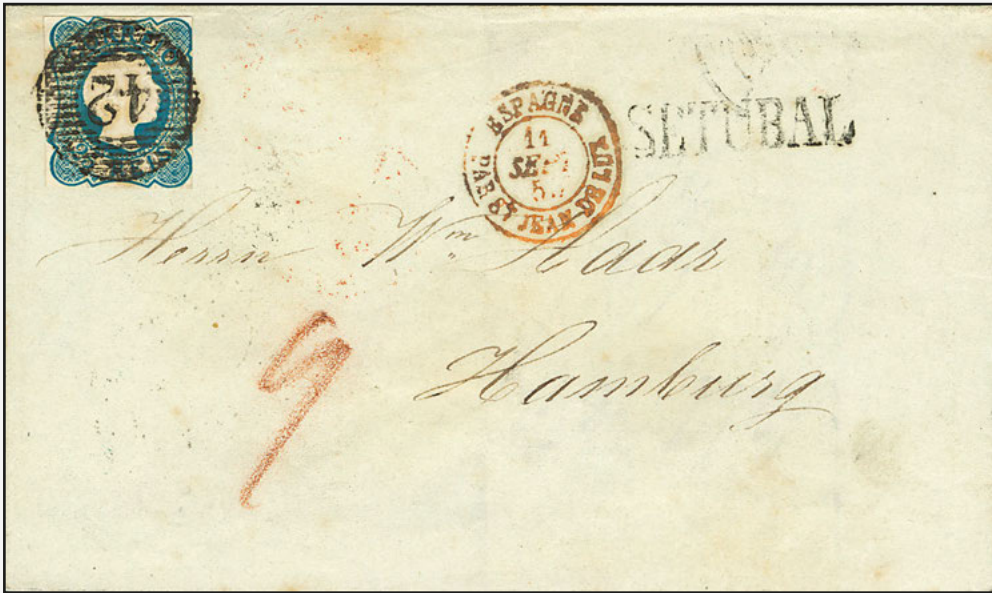 42
ESPAGNE
11
SEPT
5
PAR St JEAN DE LUZ
SETUBAL
Herrn Wm Haar
Hamburg
9